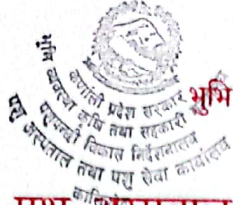 कर्णाली प्रदेश सरकार
भूमि व्यवस्था कृषि तथा सहकारी
भूमि
पशुपन्छी विकास निर्देशनालय
पशु अस्पताल तथा पशु सेवा कार्यालय